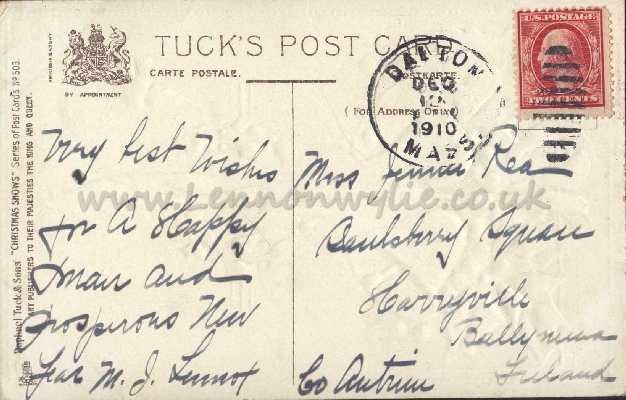 TUCK'S POST CARD
CARTE POSTALE.
POSTKARTE.
BY APPOINTMENT
( FOR ADDRESS ONLY )
Raphael Tuck & Sons' "CHRISTMAS SNOWS" Series of Post Cards Nº 503.
ART PUBLISHERS TO THEIR MAJESTIES THE KING AND QUEEN.
U.S. POSTAGE
TWO CENTS
DALTON
DEC
1910
MASS
www.Lennonwylie.co.uk
Very best Wishes
for A Happy
and
Prosperous New
Year M. J. Lennox
Miss Jennie Rea
Saulsberry Square
Harryville
Ballymena
Co Antrim Ireland